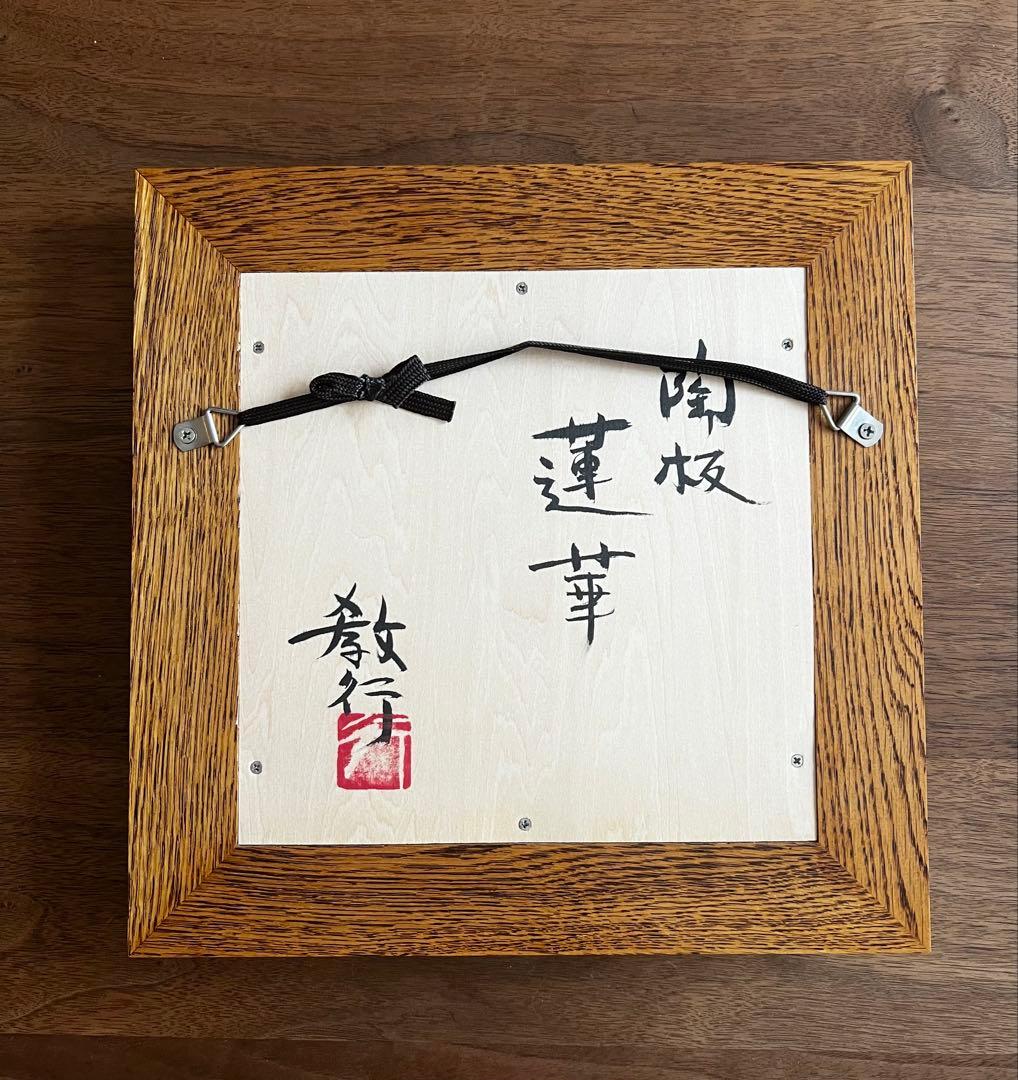 陶板
蓮華
教行